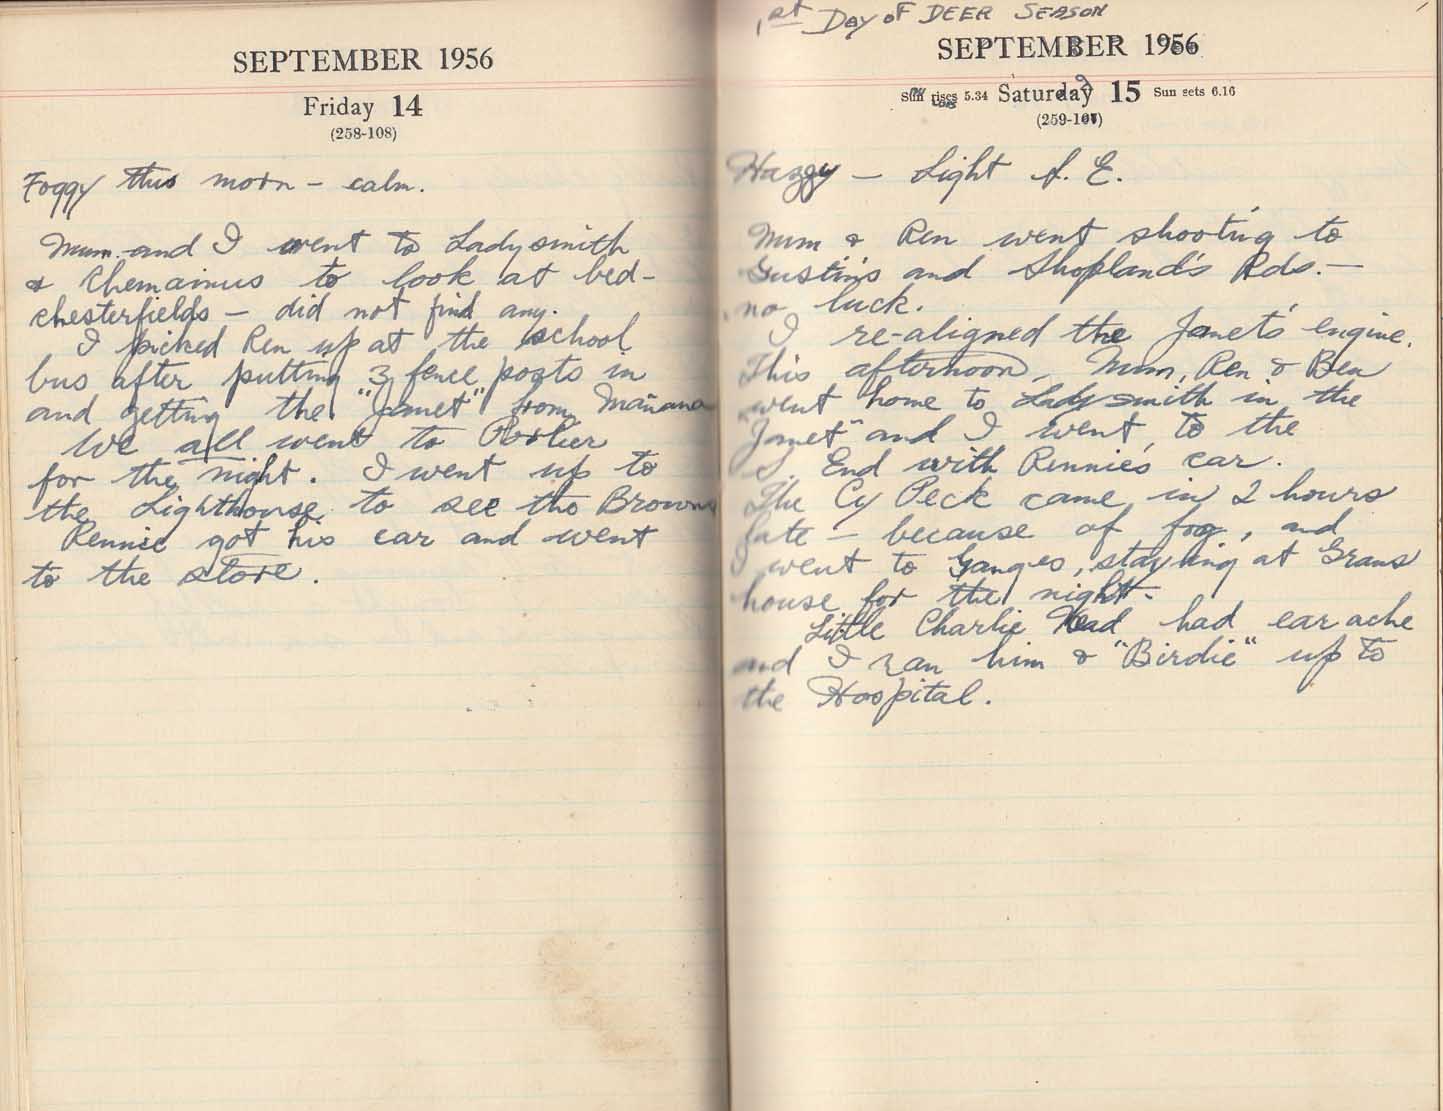 SEPTEMBER 1956
Friday 14
(258-108)
Foggy this morn - calm.
Mum and I went to Ladysmith
& Chemainus to look at bed-
chesterfields - did not find any.
I picked Ren up at the school
bus after putting 3 fence posts in
and getting the "Janet" from Mañana
We all went to Porlier
for the night. I went up to
the Lighthouse to see the Browns
Rennie got his car and went
to the store.
1st DAY OF DEER SEASON
SEPTEMBER 1956
Sun rises 5.34 Saturday 15 Sun sets 6.16
(259-107)
Hazy - Light S. E.
Mum & Ren went shooting to
Gustin's and Shopland's Rds. -
no luck.
I re-aligned the Janet's engine.
This afternoon, Mum, Ren & Ben
went home to Ladysmith in the
"Janet" and I went to the
S. End with Rennie's car.
The Cy Peck came in 2 hours
late - because of fog, and
I went to Ganges, staying at Grans
house for the night.
Little Charlie Head had ear ache
and I ran him & "Birdie" up to
the Hospital.